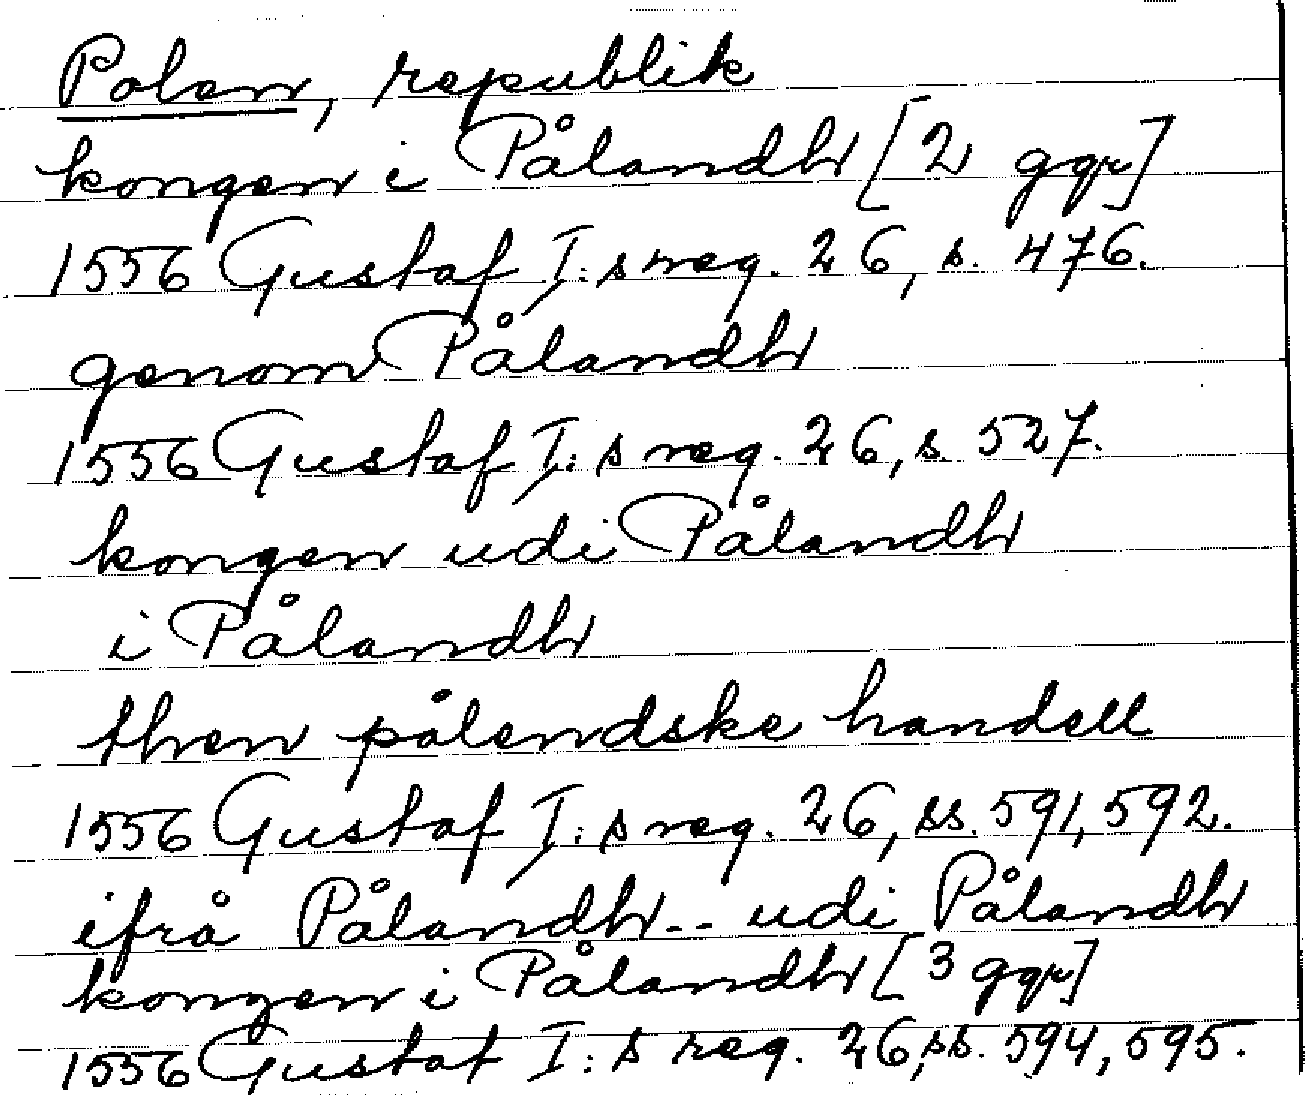 Polen, republik
kongen i Pålandh [2 ggr]
1556 Gustaf I:s reg. 26, s. 476.
genom Pålandh
1556 Gustaf I:s reg. 26, s. 527.
kongen udi Pålandh
i Pålandh
then pålendske handell
1556 Gustaf I:s reg. 26, ss. 591, 592.
ifrå Pålandh -- udi Pålandh
kongen i Pålandh [3 ggr]
1556 Gustaf I:s reg. 26, ss. 594, 595.